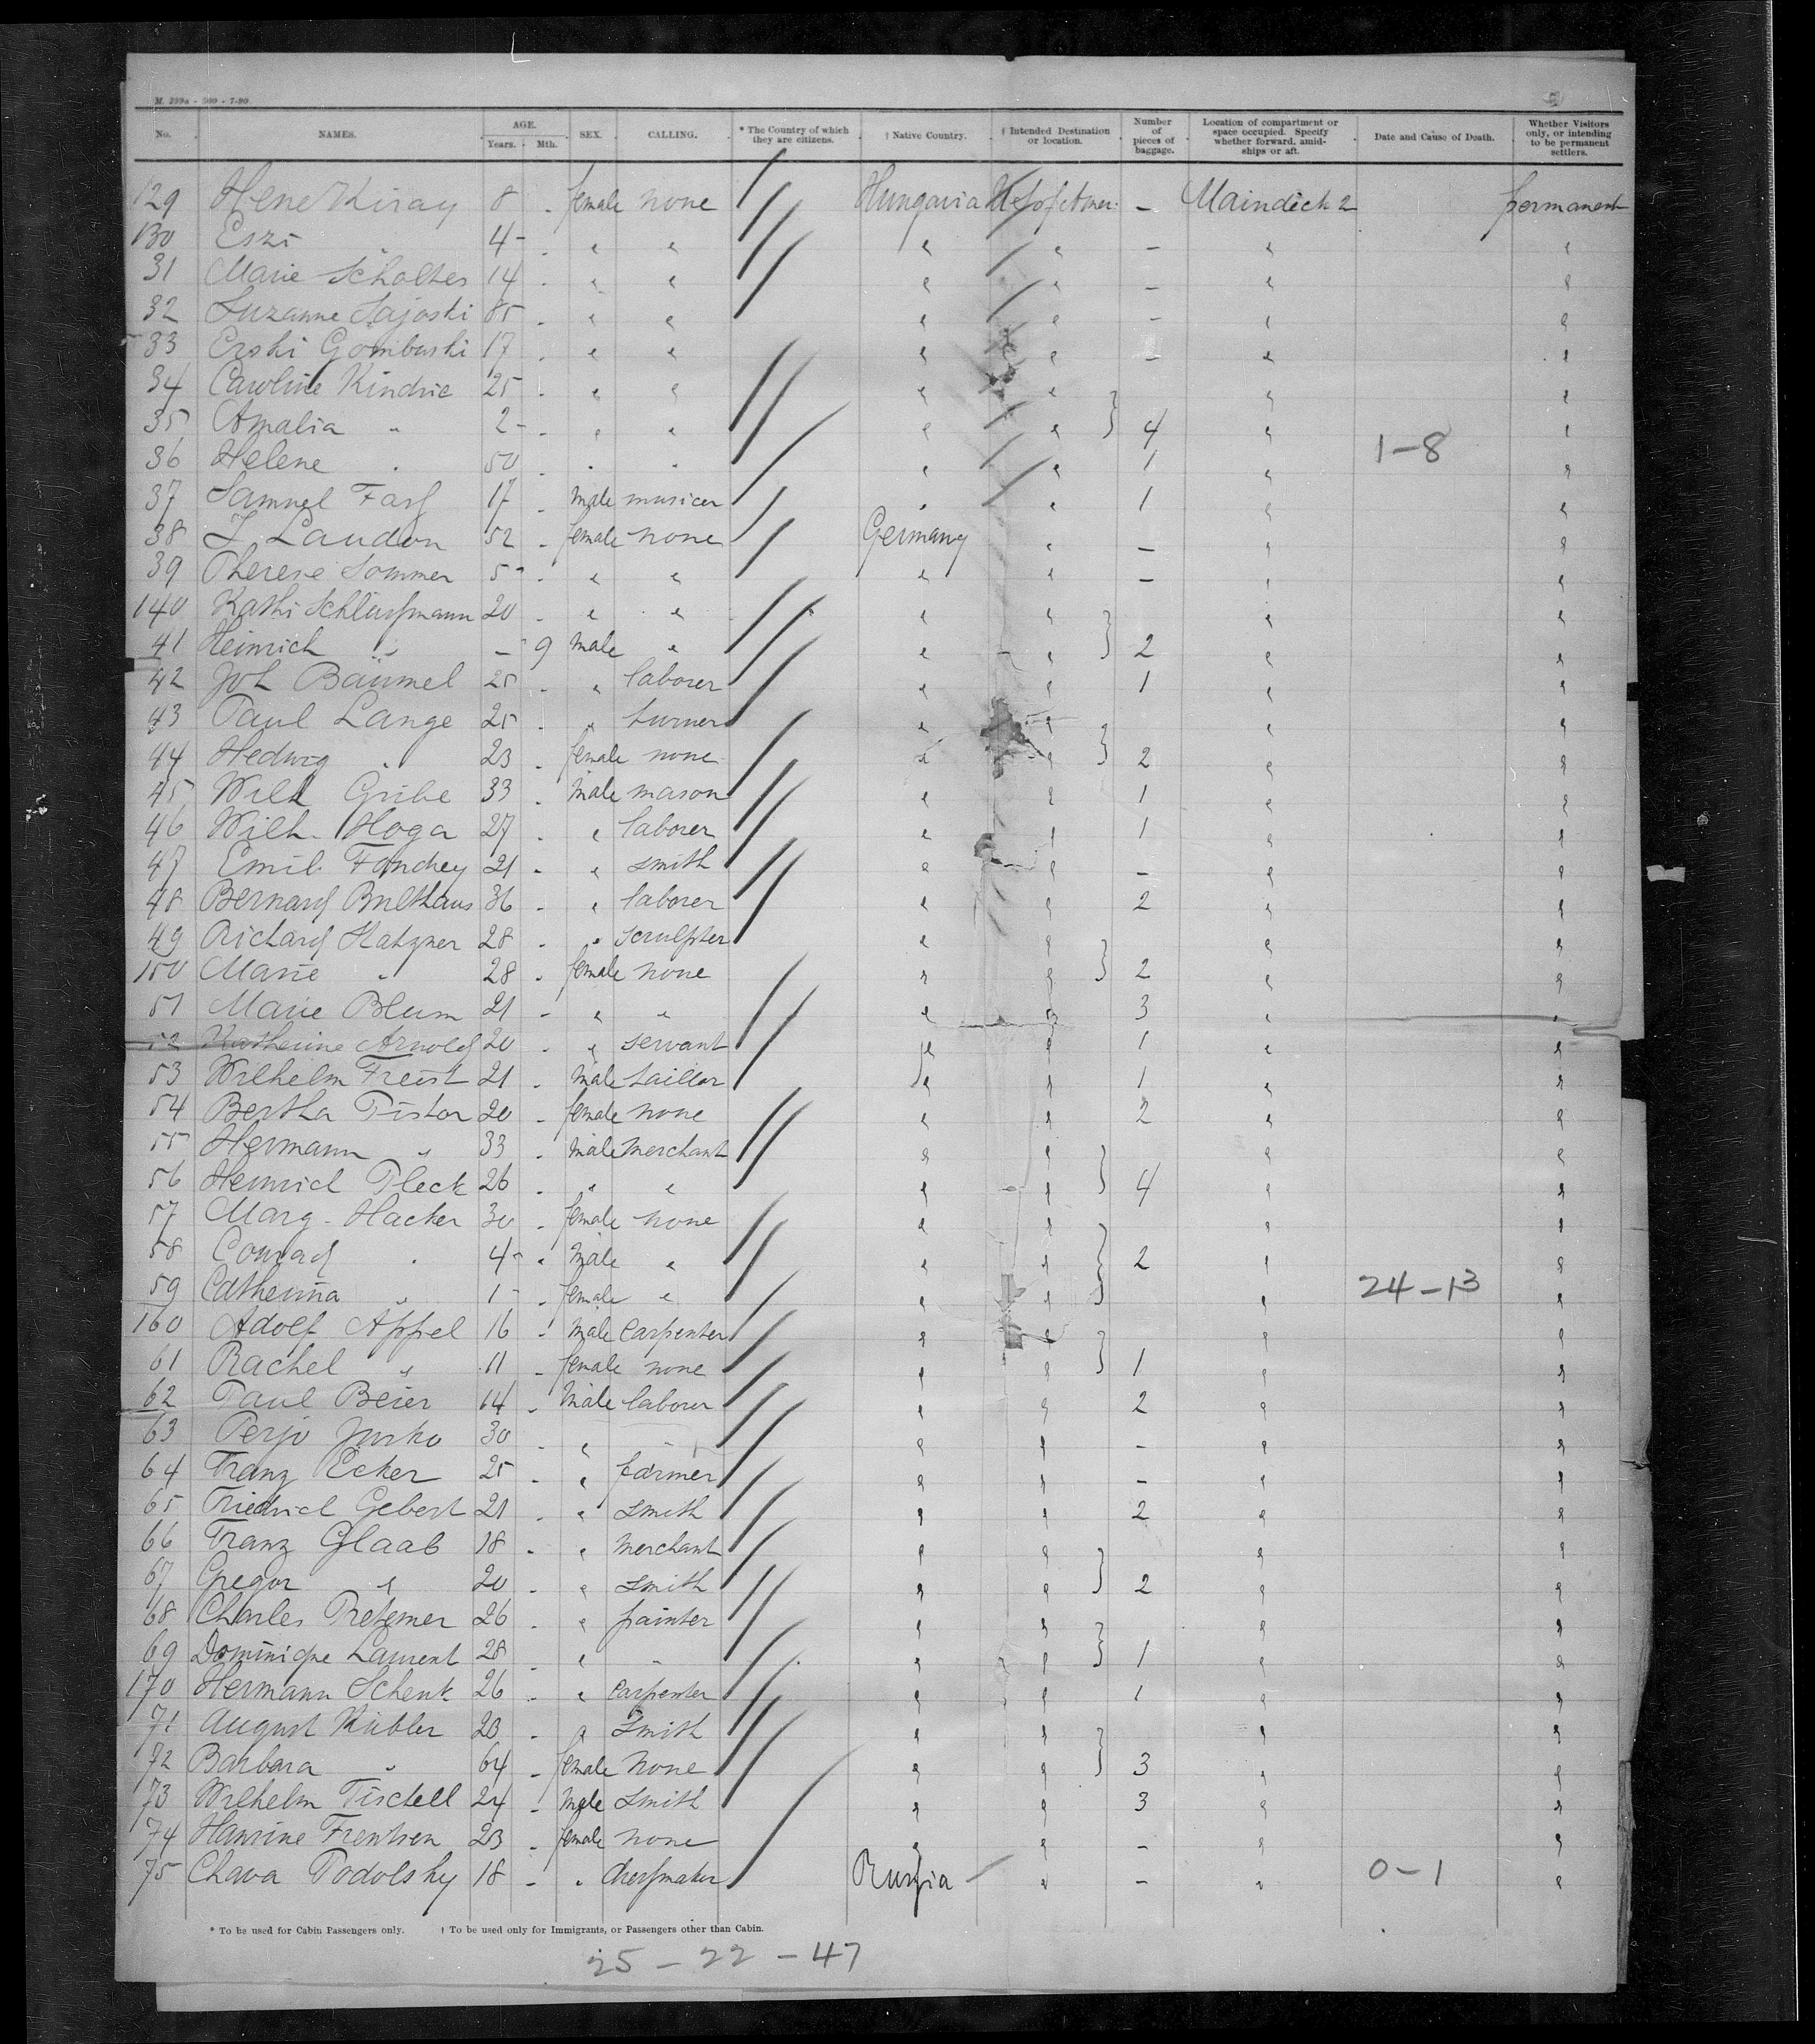 M. 399a - 500 - 7-90
No. NAMES. AGE. Years. Mth. SEX. CALLING. * The Country of which they are citizens. † Native Country. † Intended Destination or location. Number of pieces of baggage. Location of compartment or space occupied. Specify whether forward, amidships or aft. Date and Cause of Death. Whether Visitors only, or intending to be permanent settlers.
129 Kiray 8 - female none Hungaria - Maindeck 2 permanent
130 Eszi " 4 - " " " " - " "
31 Marie Scholtes 14 - " " " " - " "
32 Suzanne Sajoski 85 - " " " " - " "
33 Erski Gombaski 17 - " " " " - " "
34 Caroline Kindric 25 - " " " " " "
35 Amalia " 2 - " " " " 4 " "
36 Helene " 50 - " " " " 1 " 1-8 "
37 Samuel 17 - male musicer " " 1 " "
38 Laudon 52 - female none Germany " - " "
39 Therese Sommer 5 - " " " " - " "
140 Kathi 20 - " " " " " "
41 Heinrich " - 9 male " " " 2 " "
42 Joh Baumel 25 - " laborer " " 1 " "
43 Paul Lange 25 - " turner " " " "
44 Hedwig " 23 - female none " " 2 " "
45 Wilh Gribe 33 - male mason " " 1 " "
46 Wilh. Hoga 27 - " laborer " " 1 " "
47 Emil 21 - " smith " " - " "
48 Bernard Bulthaus 36 - " laborer " " 2 " "
49 Richard Hatzner 28 - " sculpter " " " "
150 Marie " 28 - female none " " 2 " "
51 Marie Blum 21 - " " " " 3 " "
52 Katherine Arnold 20 - " servant " " 1 " "
53 Wilhelm Freist 21 - male taillor " " 1 " "
54 Bertha Pistor 20 - female none " " 2 " "
55 Hermann " 33 - male merchant " " " "
56 Heinrich Pleck 26 - " " " " 4 " "
57 Marg. Hacker 30 - female none " " " "
58 Conrad " 4 - male " " " 2 " "
59 Catherina " 1 - female " " " " 24-13 "
160 Adolf Appel 16 - male carpenter " " " "
61 Rachel " 11 - female none " " 1 " "
62 Paul Beier 14 - male laborer " " 2 " "
63 Perjo Jurko 30 - " - " " - " "
64 Franz Ecker 25 - " farmer " " - " "
65 Friedrich Gebert 21 - " smith " " 2 " "
66 Franz Glaab 18 - " merchant " " " "
67 Gregor " 20 - " smith " " 2 " "
68 Charles Pretemer 26 - " painter " " " "
69 Dominique Laurent 28 - " - " " 1 " "
170 Hermann Schenk 26 - " carpenter " " 1 " "
71 August Kubler 23 - " smith " " " "
72 Barbara " 64 - female none " " 3 " "
73 Wilhelm Tischell 24 - male smith " " 3 " "
74 Hansine Frentsen 23 - female none " " - " "
75 Chava Podolsky 18 - " Russia " - " 0-1 "
* To be used for Cabin Passengers only. † To be used only for Immigrants, or Passengers other than Cabin.
25 - 22 - 47